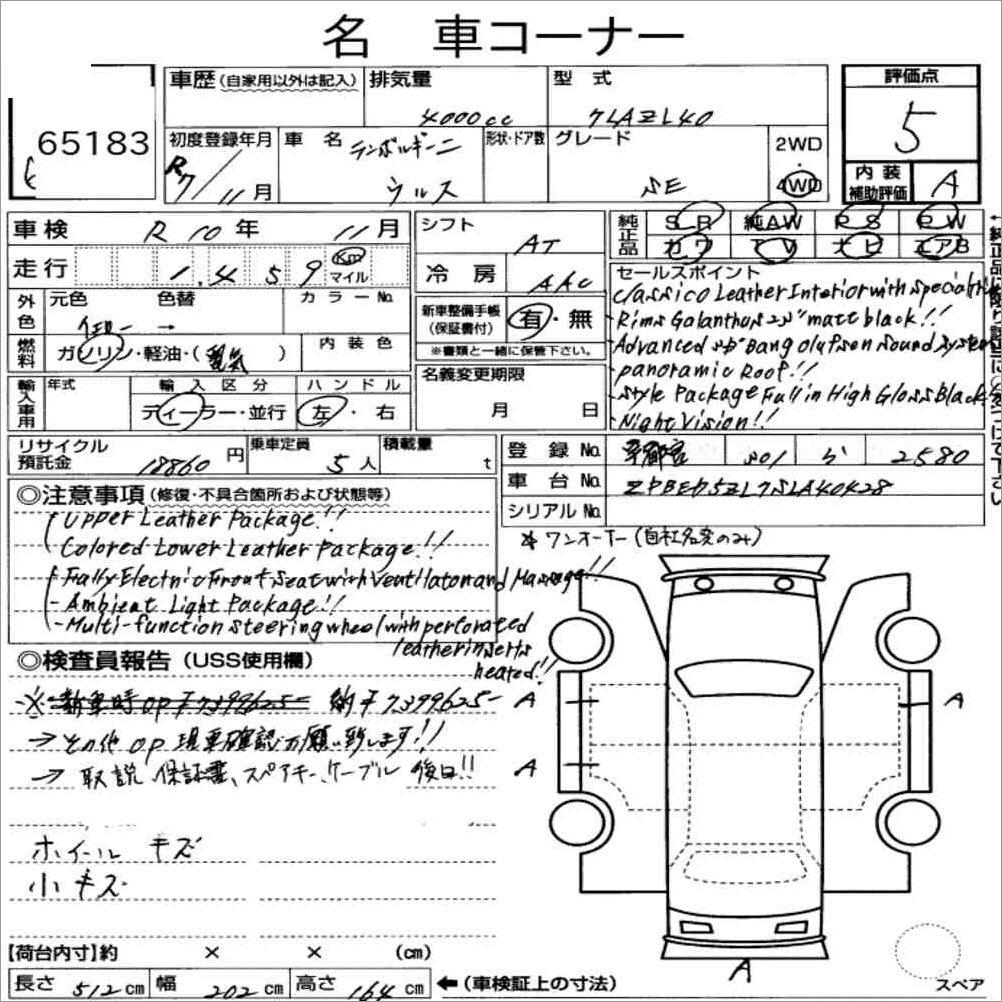 名 車コーナー
65183
車歴 (自家用以外は記入)
排気量
4000cc
型式
7LAZL40
評価点
5
初度登録年月
R7/11月
車名
ランボルギーニ
ウルス
形状・ドア数
グレード
SE
2WD
4WD
内装
補助評価
A
車検 R10年 11月
走行 1.459 Km マイル
シフト AT
冷房 AAC
純正品 SR 純AW PS PW
カワ TV ナビ エアB
外色 元色 色替 カラーNo.
→
燃料 ガソリン・軽油・(電気)
内装色
新車整備手帳
(保証書付)
有・無
※書類と一緒に保管下さい。
セールスポイント
Classico Leather Interior with special
- Rims Galanthus 23" matt black!!
- Advanced 3D Bang olufsen sound system
- panoramic Roof!!
- style Package Full in High Gloss Black
- Night Vision!!
輸入車用 年式
輸入区分 ディーラー・並行
ハンドル 左・右
名義変更期限
月 日
リサイクル
預託金 18860円
乗車定員 5人
積載量 t
登録No. 京都 301 2580
車台No. ZPBED5ZL7SLA40428
シリアルNo.
◎注意事項 (修復・不具合箇所および状態等)
Upper Leather Package!!
Colored Lower Leather Package!!
- Fully Electric Front Seat with Ventilation and Massage!!
- Ambient Light Package!!
- Multi-function steering wheel with perforated
leather inserts
heated!!
* ワンオーナー (自社名変のみ)
◎検査員報告 (USS使用欄)
※ 新車時OP¥7399625 ¥7399625-
→ その他OP現車確認お願い致します!!
→ 取説、保証書、スペアキー、ケーブル 後日!!
ホイール キズ
小キズ
A
A
A
A
【荷台内寸】約 × × (cm)
長さ 512cm 幅 202cm 高さ 164cm ←(車検証上の寸法)
スペア